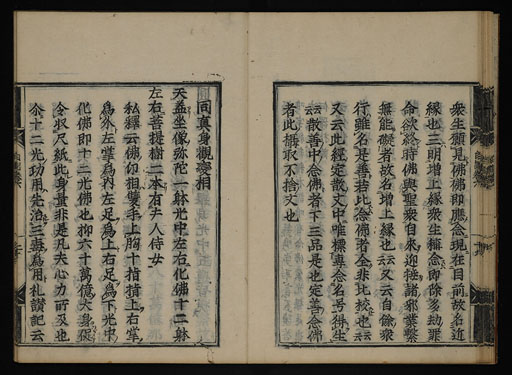 衆生願見佛佛即應念現在目前故名近
縁也三明増上縁衆生稱念即除多劫罪
命欲終時佛與聖衆自來迎接諸邪業繫
無能礙者故名増上縁也云云又云自餘衆
行雖名是善若比念佛者全非比挍也云云
又云此經定散文中唯標專念名号得生
云云散善中念佛者下三品是也定善念佛
者此攝取不捨文也
同真身觀變相
天蓋坐像弥陀一躰光中左右化佛十二躰
左右菩提樹二本有夫人侍女
私釋云佛仰相雙手上胸十指揹上右掌
爲外左掌爲内左足爲上右足爲下光中
化佛即十二光佛也抑六十萬億
令収尺紙此身量非是凡夫心力所及也
尒十二光功用先治三毒爲用礼讃記云